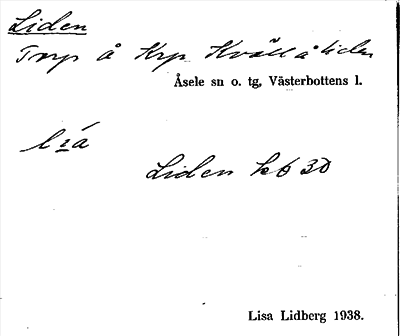 Liden
Torp å Krp Kvällåliden
Åsele sn o. tg, Västerbottens l.
Liden kb 30
Lisa Lidberg 1938.